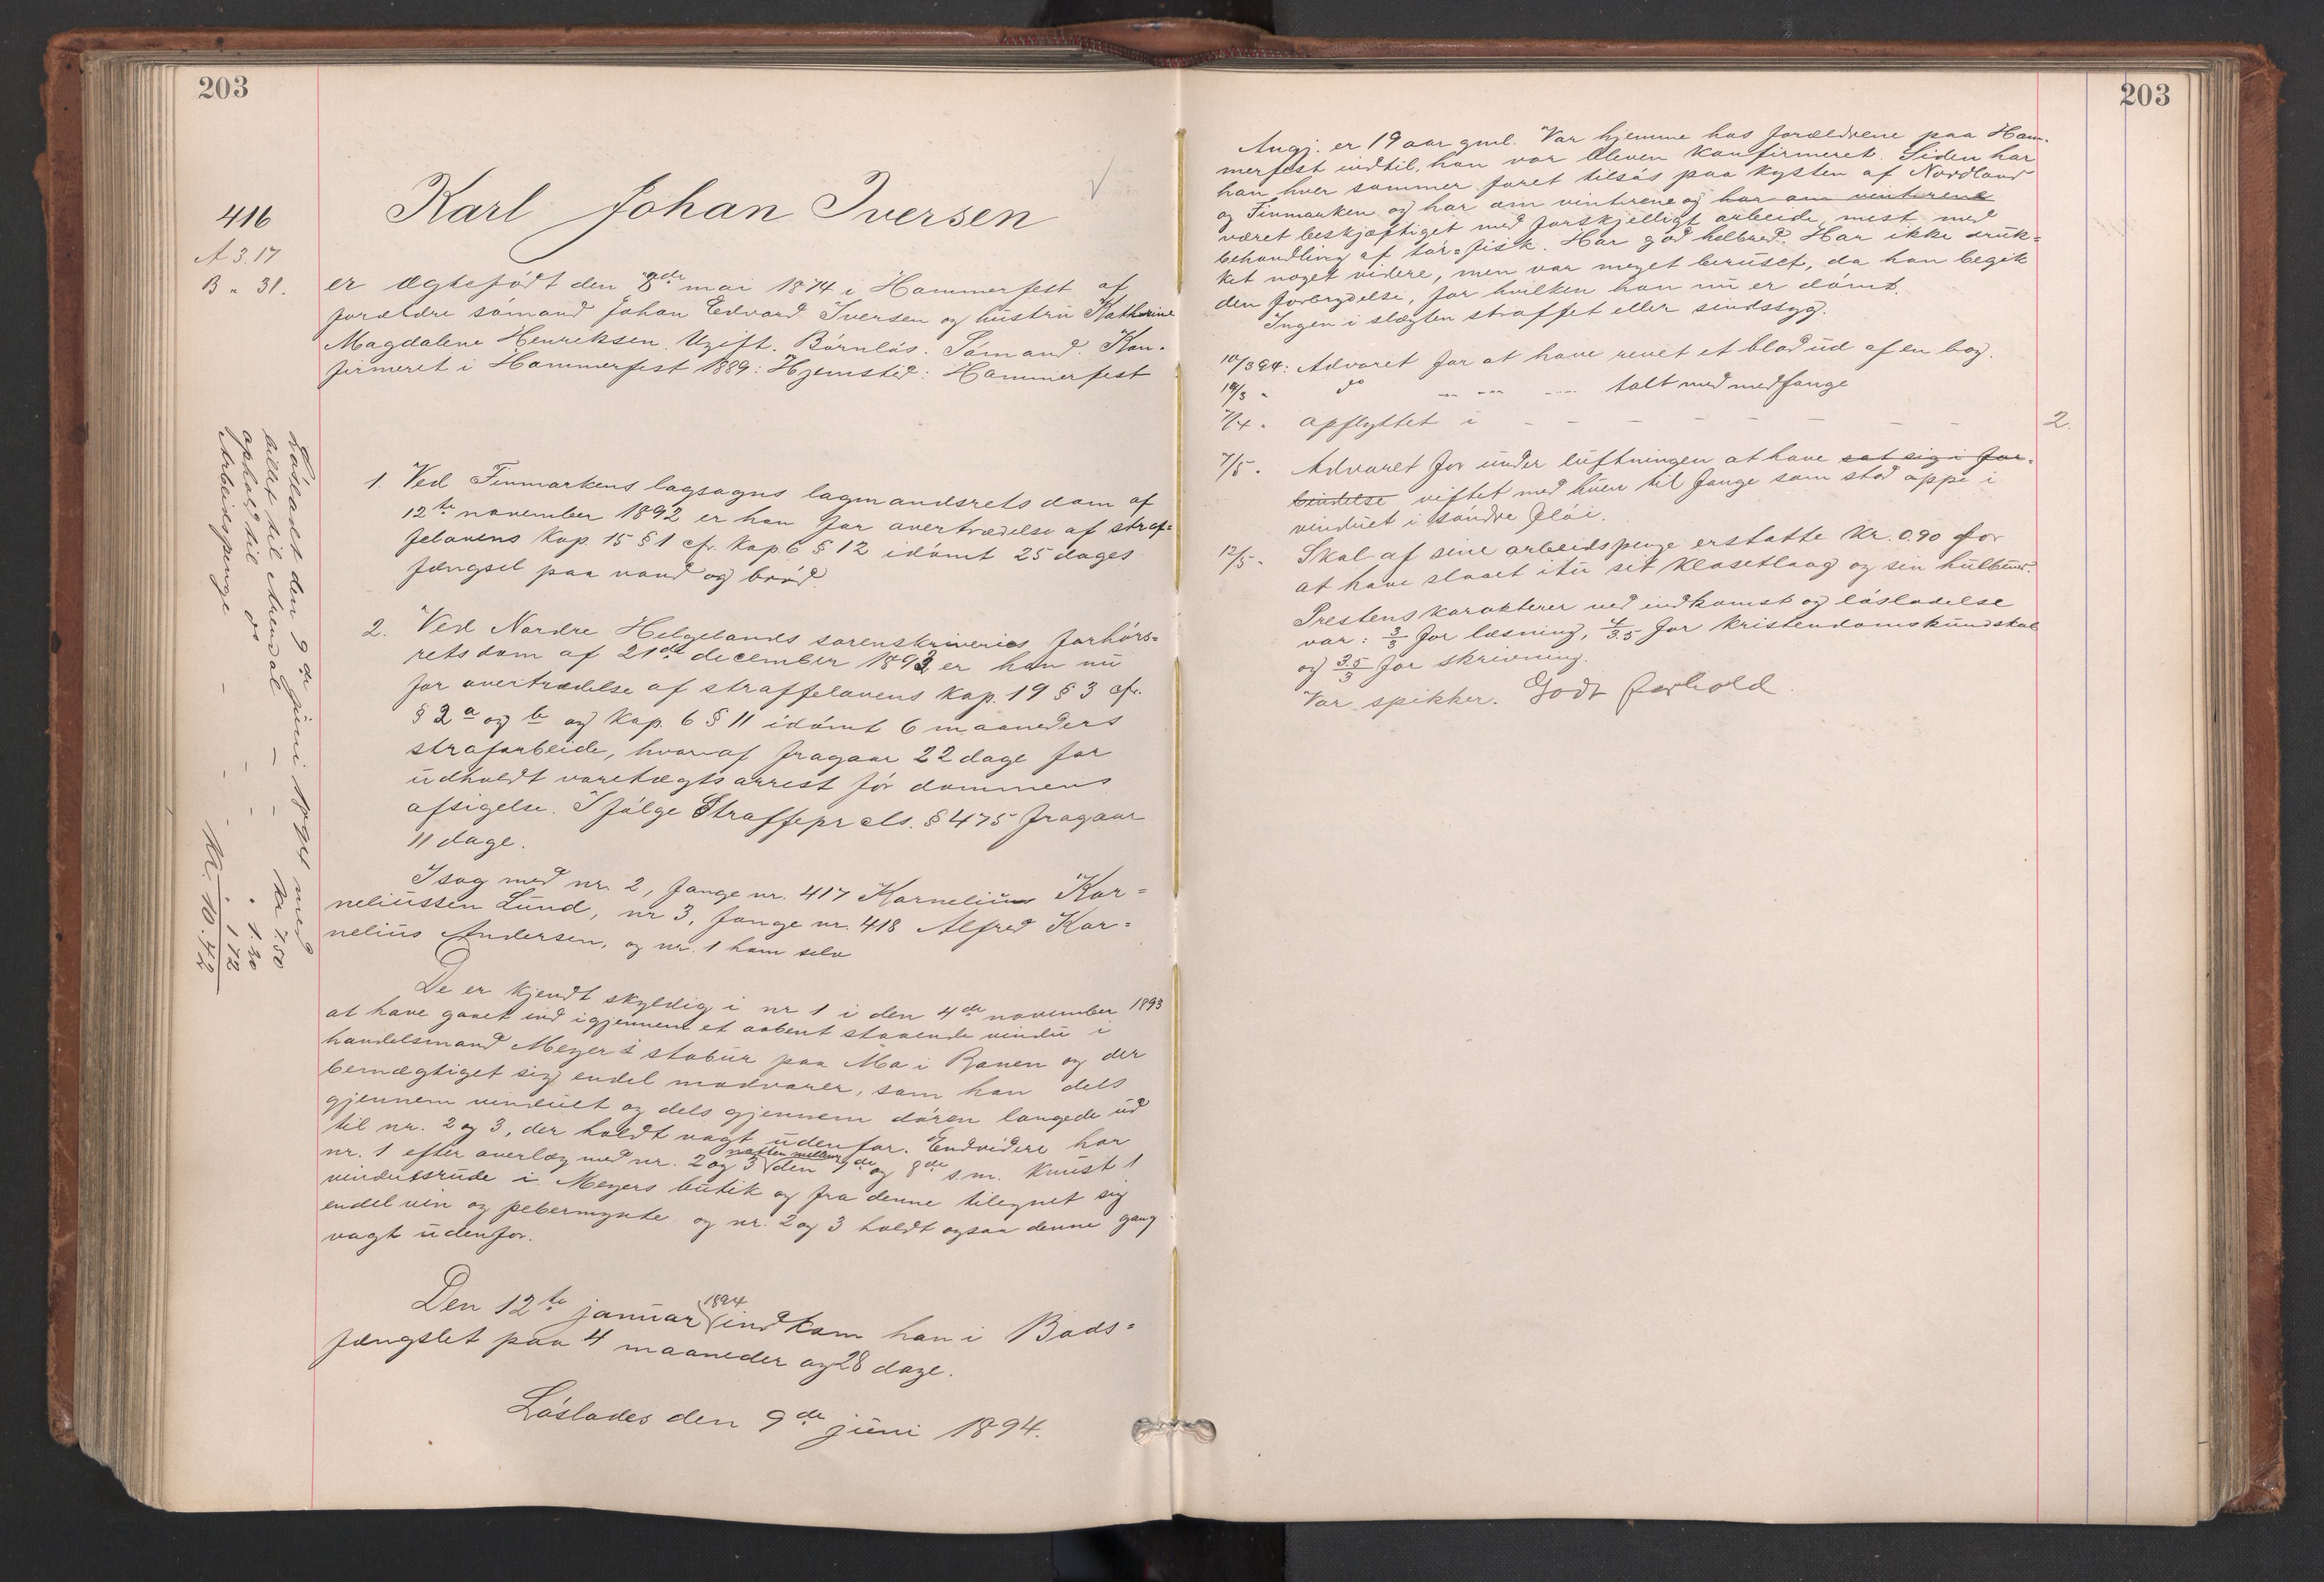 203
416
A 3.17
B " 31.
Karl Johan Iversen
er ægtefødt den 8de mai 1874 i Hammerfest af
forældre sømand Johan Edvard Iversen og hustru Kathrine
Magdalene Henriksen. Ugift. Børnløs. Sømand. Kon-
firmeret i Hammerfest 1889: Hjemsted: Hammerfest
1. Ved Finmarkens lagsogns lagmandsrets dom af
12te november 1892 er han for overtrædelse af straf-
felovens Kap. 15 § 1 cfr. Kap 6 § 12 idømt 25 dages
fængsel paa vand og brød
2. Ved Nordre Helgelands sorenskriveries forhørs-
retsdom af 21de december 1893 er han nu
for overtrædelse af straffelovens Kap. 19 § 3 cfr.
§ 2 a og b og Kap. 6 § 11 idømt 6 maaneders
strafarbeide, hvoraf fragaar 22 dage for
udholdt varetægtsarrest før dommens
afsigelse. I følge Straffepr cls. § 475 fragaar
11 dage.
I sag med nr. 2, fange nr. 417 Kornelius Kor-
neliussen Lund, nr 3, fange nr. 418 Alfred Kor-
nelius Andersen, og nr. 1 ham selv
De er kjendt skyldig i nr 1 i den 4de november 1893
at have gaaet ind igjennem et aabent staaende vindu i
handelsmand Meyers stabur paa Mo i Ranen og der
bemægtiget sig endel madvarer, som han dels
gjennem vinduet og dels gjennem døren langede ud
til nr. 2 og 3, der holdt vagt udenfor. Endvidere har
nr. 1 efter overlæg med nr. 2 og 3 natten mellem den 7de og 8de s.m. knust 1
vinduesrude i Meyers butik og fra denne tilegnet sig
endel vin og pebermynte og nr. 2 og 3 holdt ogsaa denne gang
vagt udenfor.
Den 12te januar 1894 indkom han i Bods-
fængslet paa 4 maaneder og 28 dage.
Løslades den 9de juni 1894.
Løsladt den 9de juni 1894 med
billet til Arendal - - Kr. 7.50
ophold til do - - " 1.20
Arbeidspenge - - - " 1.72
Kr. 10.42
203
Angj. er 19 aar gml. Var hjemme hos forældrene paa Ham-
merfest indtil han var bleven konfirmeret. Siden har
han hver sommer faret tilsøs paa kysten af Nordland
og Finmarken og har om vinterene og har om vinterene
været beskjæftiget med forskjelligt arbeide, mest med
behandling af tør-fisk. Har god helbred. Har ikke druk-
ket noget videre, men var meget beruset, da han begik
den forbrydelse, for hvilken han nu er dømt.
Ingen i slægten straffet eller sindssyg.
10/3 94: Advaret for at have revet et blad ud af en bog.
19/3 - do - - - talt med medfange
7/4 - opflyttet i - - - - - - - 2.
7/5 - Advaret for under luftningen at have sat sig i for-
bindelse viftet med huen til fange som stod oppe i
vinduet i søndre fløi.
12/5 - Skal af sine arbeidspenge erstatte Kr. 0.90 for
at have slaaet itu sit Klosetlaag og sin hulbund.
Prestens karakterer ved indkomst og løsladelse
var: 3/3 for læsning, 4/3.5 for Kristendomskundskab
og 3.5/3 for skrivning.
Var spikker. Godt forhold.